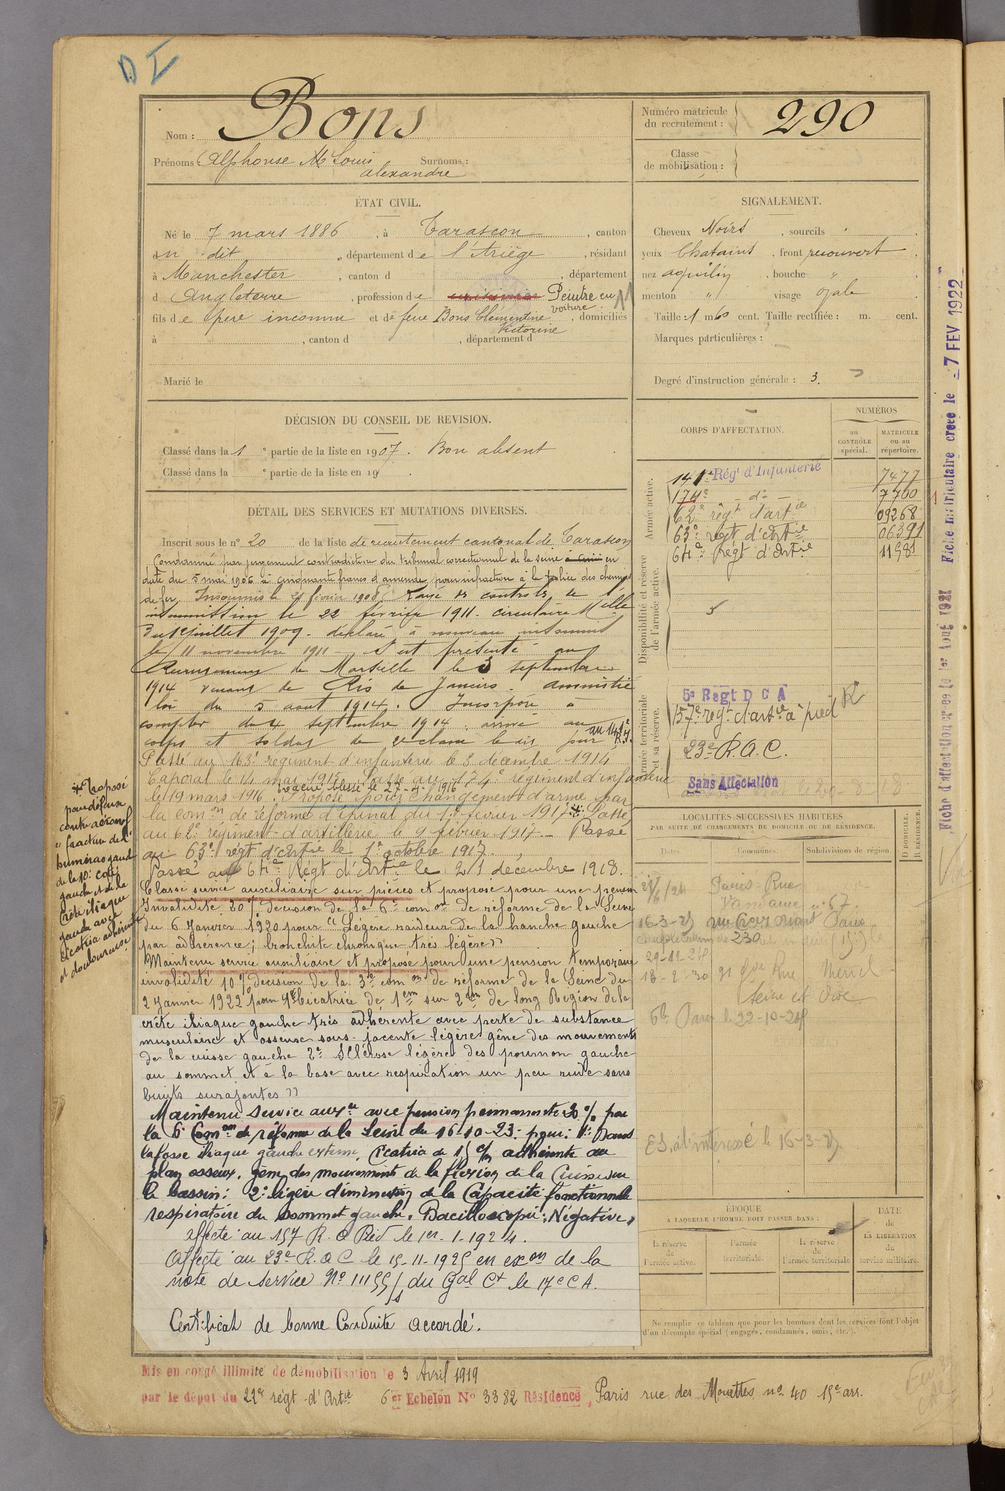 D I
Nom : Bons
Prénoms : Alphonse Mie Louis Surnoms :
Alexandre
ÉTAT CIVIL.
Né le 7 mars 1886, à Tarascon, canton
du dit, département de l'Ariège, résidant
à Manchester, canton d , département
d Angleterre, profession de Peintre en
voiture
fils de père inconnu et de feue Bons Clémentine, domiciliés
Victorine
à , canton d , département d
Marié le
DÉCISION DU CONSEIL DE REVISION.
Classé dans la 1 e partie de la liste en 1907. Bon absent
Classé dans la e partie de la liste en 19 .
DÉTAIL DES SERVICES ET MUTATIONS DIVERSES.
Inscrit sous le n° 20 de la liste de recrutement cantonal de Tarascon
Condamné par jugement contradictoire du tribunal correctionnel de la Seine en
date du 5 mai 1906 à cinquante francs d'amende pour infraction à la police des chemins
de fer. Insoumis le février 1908. Rayé des contrôles de l'
insoumission le 22 février 1911. circulaire Mlle
du juillet 1909. déclaré à nouveau insoumis
le 11 novembre 1911. S'est présenté au
Recrutement de Marseille le 3 septembre
1914 venant de Rio de Janeiro. Amnistié
loi du 5 aout 1914. Incorporé à
compter du 4 septembre 1914. arrivé au
corps et soldat de 2e classe le dit jour au 141e R.I.
Passé au 163e régiment d'infanterie le 3 décembre 1914
Caporal le 14 mai 1915. Passé au 174e régiment d'infanterie
le 19 mars 1916. blessé le 27-4-1916. Proposé pour changement d'arme par
la comon de réforme d'Epinal du 1er février 1917 * Passé
au 62e régiment d'artillerie le 9 février 1917. Passé
au 63e régt d'Artie le 1er octobre 1917.
Passé au 64e Régt d'Artie le 21 décembre 1918.
Classé service auxiliaire sur pièces et proposé pour une pension
Invalidité 20% décision de la 6e comon de réforme de la Seine
du 6 Janvier 1920 pour "Légère raideur de la hanche gauche
par adhérence; bronchite chronique très légère"
Maintenu service auxiliaire et proposé pour une pension temporaire
invalidité 10% décision de la 3e comon de réforme de la Seine du
2 Janvier 1922 pour "1° Cicatrice de 1cm sur 2cm de long Région de la
crête iliaque gauche très adhérente avec perte de substance
musculaire et osseuse sous-jacente légère gêne des mouvements
de la cuisse gauche 2° Sclérose légère des poumon gauche
au sommet et à la base avec respiration un peu rude sans
bruits surajoutés"
Maintenu service auxre avec pension permanente 20% par
la 6e Comon de réforme de la Seine du 16-10-23 pour: 1° Dans
la fosse iliaque gauche externe, cicatrice de 15 c/m adhérente au
plan osseux, gêne des mouvements de la flexion de la Cuisse sur
le bassin: 2° légère diminution de la Capacité fonctionnelle
respiratoire du sommet gauche. Bacilloscopie: Négative.
affecté au 157 R.A. Pied le 1er-1-1924.
Affecté au 23e R.A.C le 15-11-1925 en exon de la
note de service No 11155/1 du Gal Ct le 17e C.A.
Certificat de bonne Conduite accordé.
* Proposé
pour
contre
gauche
de la
gauche et de la
Crête iliaque
gauche avec
cicatrice adhérente
et douloureuse
Numéro matricule
du recrutement : 290
Classe
de mobilisation :
SIGNALEMENT.
Cheveux Noirs, sourcils " .
yeux Chatains, front recouvert .
nez aquilin, bouche " .
menton ", visage ovale .
Taille : 1 m. 60 cent. Taille rectifiée : m. cent.
Marques particulières :
Degré d'instruction générale : 3.
CORPS D'AFFECTATION.
NUMÉROS
au
CONTRÔLE
spécial.
MATRICULE
ou au
répertoire.
Armée active.
141e Rég' d'Infanterie 7477
174e - do - 7400
62e régt d'artie 09268
63e régt d'Artie 06391
64e Régt d'Artie 11981
Disponibilité et réserve
de l'armée active.
Armée territoriale
et sa réserve.
5e Regt D C A
157e régt d'artie à pied R
23e R.A.C.
Sans Affectation
LOCALITÉS SUCCESSIVES HABITÉES
PAR SUITE DE CHANGEMENTS DE DOMICILE OU DE RÉSIDENCE.
Dates. Communes. Subdivisions de région. D DOMICILE. R RÉSIDENCE.
Paris Rue
Vandamme n° 67
16-3-25 rue Paris
230
18-2-30 91 Rue
Seine et Oise
Paris le 22-10-
ES. à l'intéressé le 16-3-25
ÉPOQUE
A LAQUELLE L'HOMME DOIT PASSER DANS :
DATE
de
LA LIBÉRATION
du
service militaire.
la réserve
de
l'armée active.
l'armée
territoriale.
la réserve
de
l'armée territoriale
Ne remplir ce tableau que pour les hommes dont les services font l'objet
d'un décompte spécial (engagés, condamnés, omis, etc.).
Mis en congé illimité de démobilisation le 3 Avril 1919
par le dépot du 22e régt d'Artie 6er Echelon No 3382 Résidence, Paris rue des Mouettes no 40 15e arr.
Fiche matriculaire créée le -7 FEV 1922
Fiche d'affectation créée le 1er Août 1921